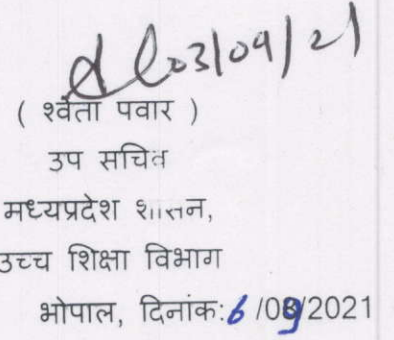 03/09/21
( श्वेता पवार )
उप सचिव
मध्यप्रदेश शासन,
उच्च शिक्षा विभाग
भोपाल, दिनांक: 6 /09/2021